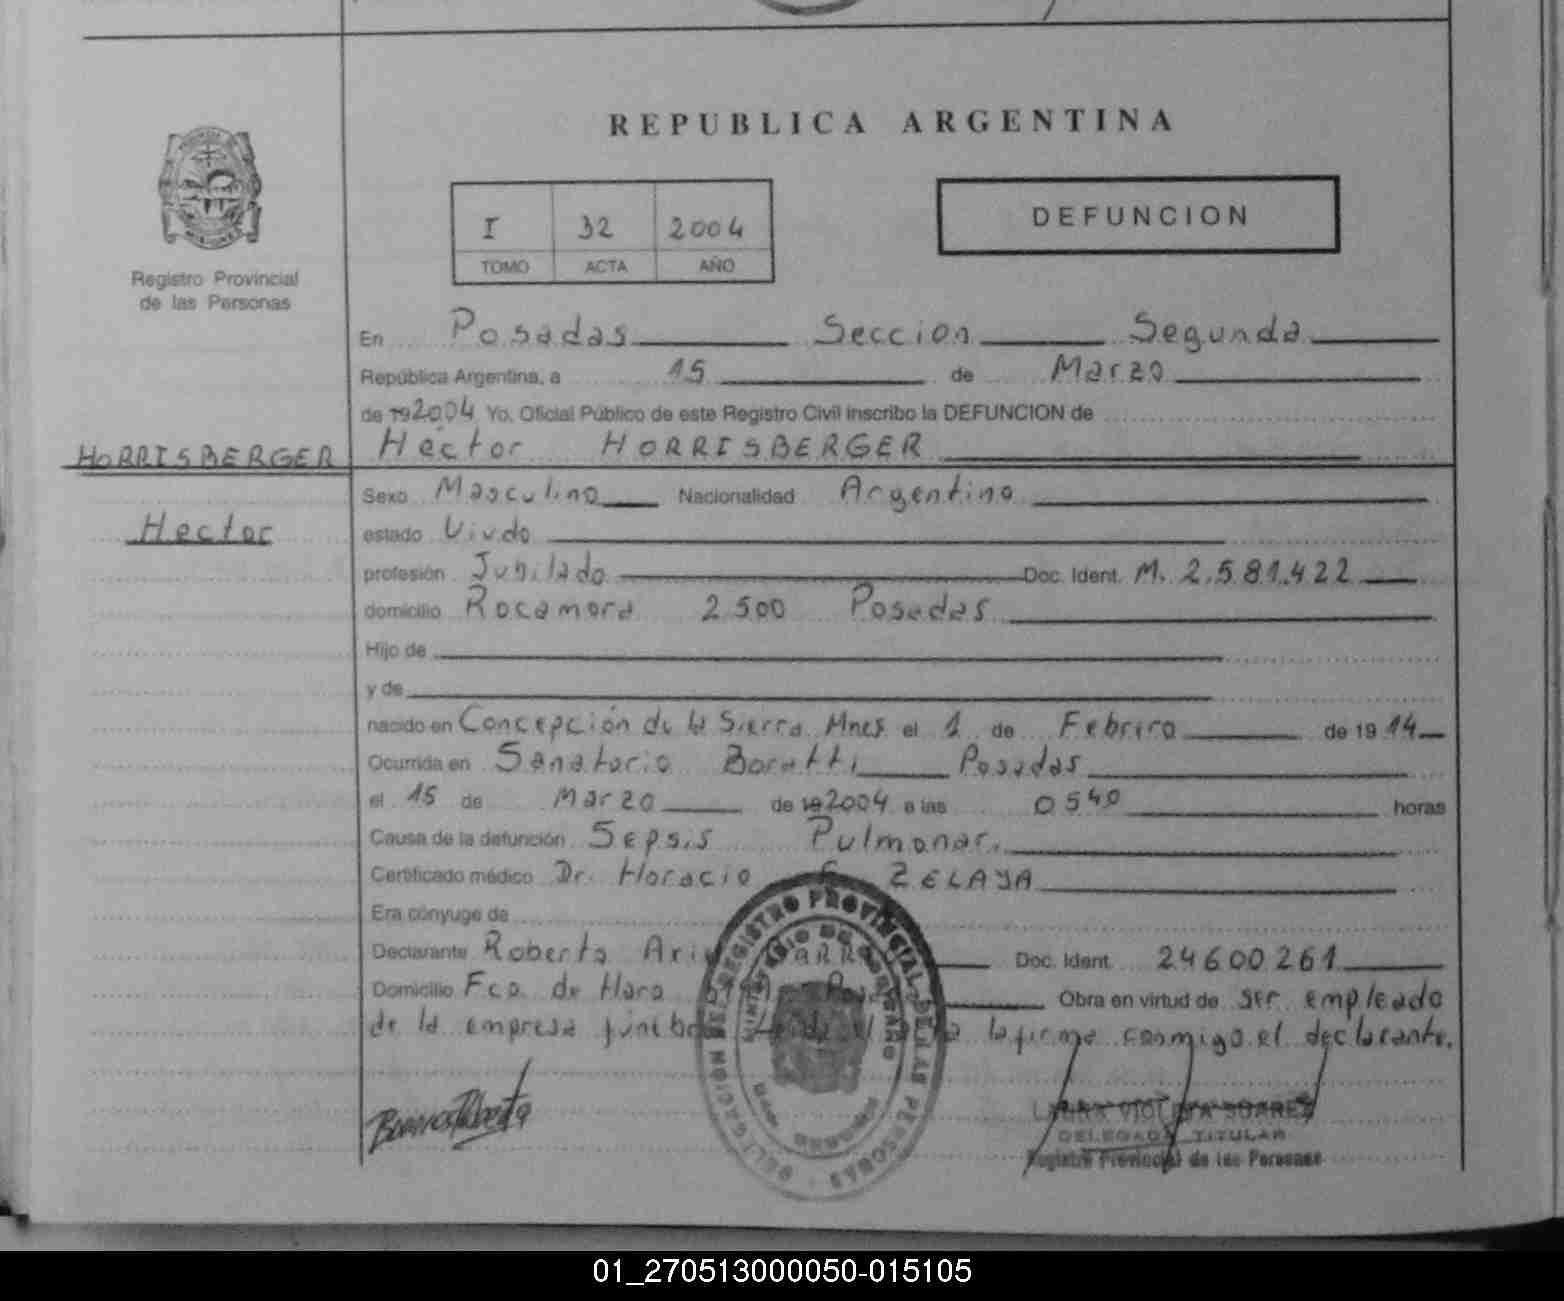 REPUBLICA ARGENTINA
I 32 2004
TOMO ACTA AÑO
DEFUNCION
Registro Provincial
de las Personas
En Posadas Seccion Segunda
República Argentina, a 15 de Marzo
de 192004 Yo, Oficial Público de este Registro Civil inscribo la DEFUNCION de
HORRISBERGER
Hector HORRISBERGER
Sexo Masculino Nacionalidad Argentino
Hector
estado Viudo
profesión Jubilado Doc. Ident. M. 2.581.422
domicilio Rocamora 2500 Posadas
Hijo de
y de
nacido en Concepción de la Sierra Mnes el 1 de Febriro de 19 14
Ocurrida en Sanatorio Boratti Posadas
el 15 de Marzo de 192004 a las 0540 horas
Causa de la defunción Sepsis Pulmonar.
Certificado médico Dr. Horacio ZELAYA
Era cónyuge de
Declarante Roberto Doc. Ident. 24600261
Domicilio Fco. de Haro Obra en virtud de ser empleado
de la empresa la firma conmigo el declarante.
REGISTRO PROVINCIAL DE LAS PERSONAS
MINISTERIO DE GOBIERNO
DELEGACION
LAURA VIOLETA SUAREZ
DELEGADA TITULAR
Registro Provincial de las Personas
01_270513000050-015105